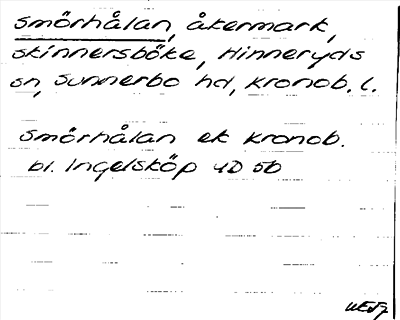 Smörhålan, åkermark,
Skinnersböke, Hinneryds
sn, Sunnerbo hd, Kronob. l.
Smörhålan ek Kronob.
bl. Ingelsköp 4D 5b